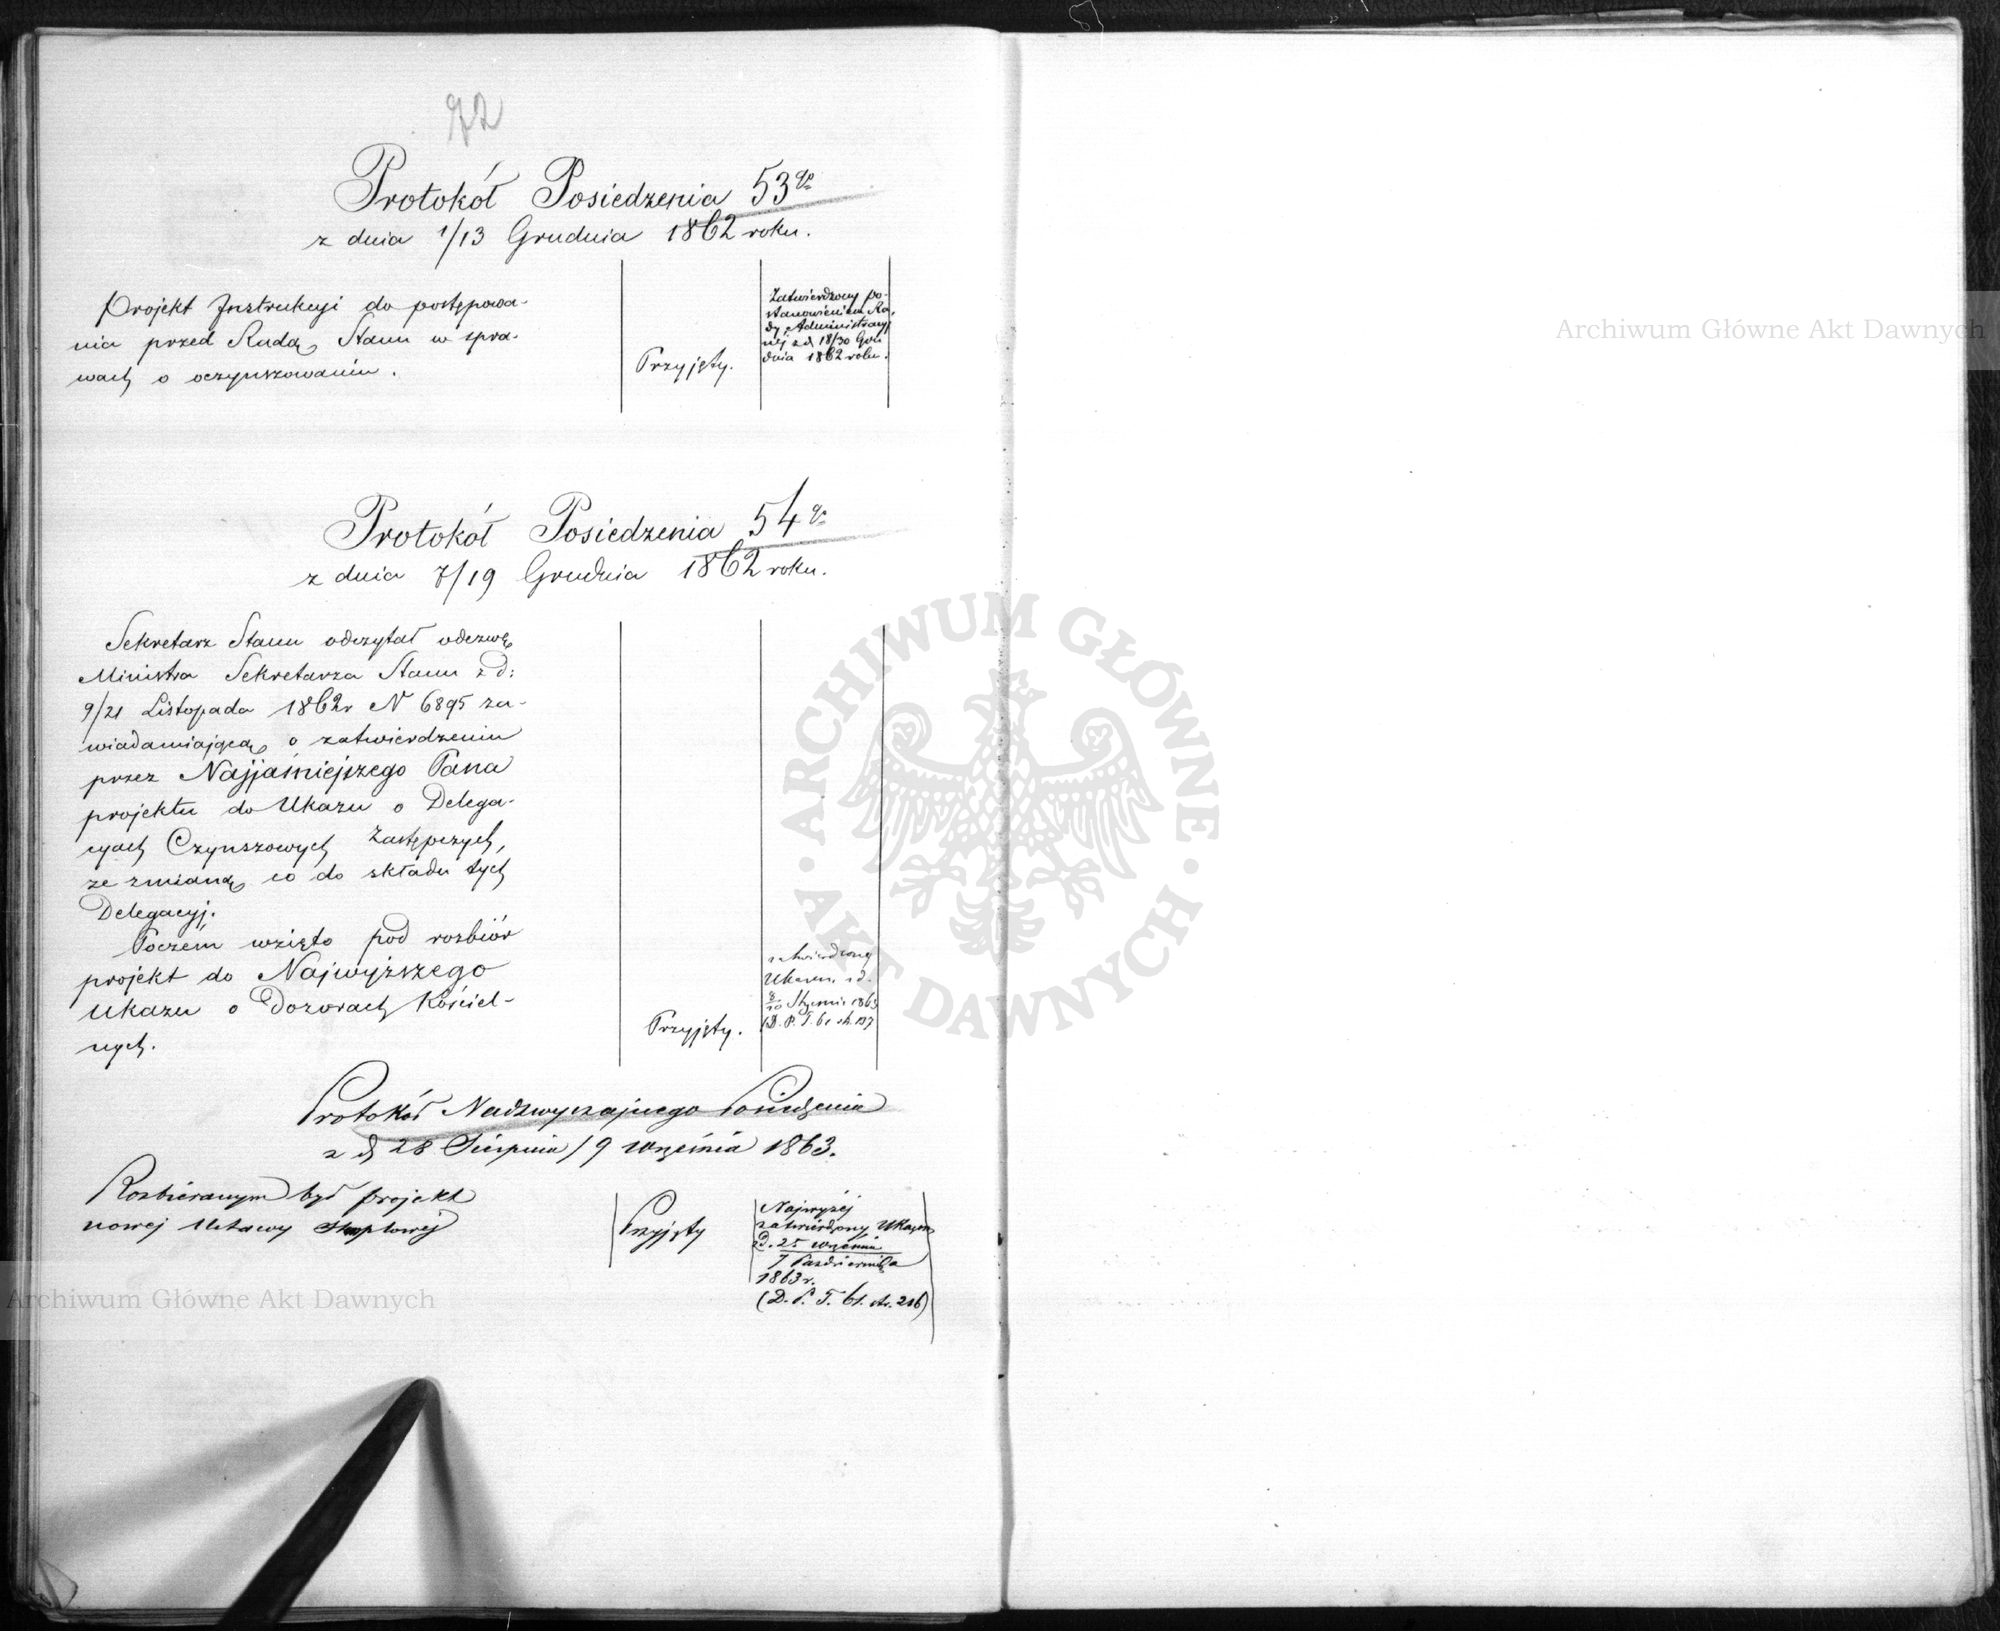 72
Protokół Posiedzenia 53go
z dnia 1/13 Grudnia 1862 roku.
Projekt Instrukcyi do postępowa-
nia przed Radą Stanu w spra-
wach o oczynszowaniu.
Przyjęty.
Zatwierdzony po-
stanowieniem Ra-
dy Administracyj
nej z d. 18/30 Gru
dnia 1862 roku.
Protokół Posiedzenia 54go
z dnia 7/19 Grudnia 1862 roku.
Sekretarz Stanu odczytał odezwę
Ministra Sekretarza Stanu z d:
9/21 Listopada 1862r N 6895 za-
wiadamiającą o zatwierdzeniu
przez Najjaśniejszego Pana
projektu do Ukazu o Delega-
cyach Czynszowych Zastępczych,
ze zmianą co do składu tych
Delegacyj.
Poczém wzięto pod rozbiór
projekt do Najwyższego
Ukazu o Dozorach Kościel-
nych.
Przyjęty.
zatwierdzony
Ukazem z d.
8/20 Stycznia 1863
(D. P. T. 61 str. 137
Protokół Nadzwyczajnego Posiedzenia
z d. 28 Sierpnia / 9 Września 1863.
Rozbieranym był projekt
nowej Ustawy Stęplowej
Przyjęty
Najwyżej
zatwierdzony Ukazem
z D. 25 Września
7 Października
1863 r.
(D. P. T. 61. str. 216)
Archiwum Główne Akt Dawnych
Archiwum Główne Akt Dawnych
ARCHIWUM GŁÓWNE · AKT DAWNYCH ·